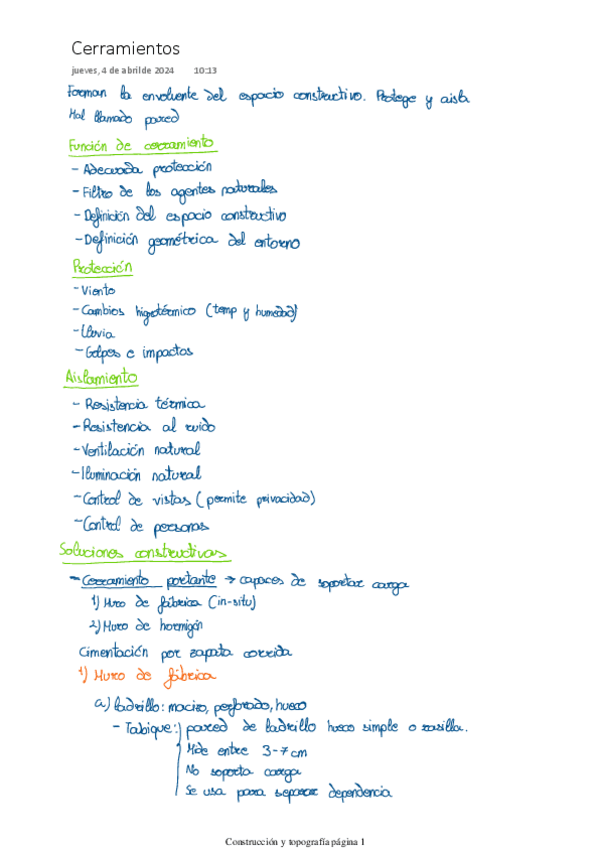 Cerramientos
jueves, 4 de abril de 2024 10:13
Forman la envolvente del espacio constructivo. Protege y aisla
Mal llamado pared
Función de cerramiento
- Adecuada protección
- Filtro de los agentes naturales
- Definición del espacio constructivo
- Definición geométrica del entorno
Protección
- Viento
- Cambios higrotérmico (temp y humedad)
- Lluvia
- Golpes e impactos
Aislamiento
- Resistencia térmica
- Resistencia al ruido
- Ventilación natural
- Iluminación natural
- Control de vistas (permite privacidad)
- Control de personas
Soluciones constructivas
- Cerramiento portante → capaces de soportar carga
1) Muro de fábrica (in-situ)
2) Muro de hormigón
Cimentación por zapata corrida
1) Muro de fábrica
a) ladrillo: macizo, perforado, hueco
- Tabique: pared de ladrillo hueco simple o rasilla.
Mide entre 3-7 cm
No soporta carga
Se usa para separar dependencia
Construcción y topografía página 1